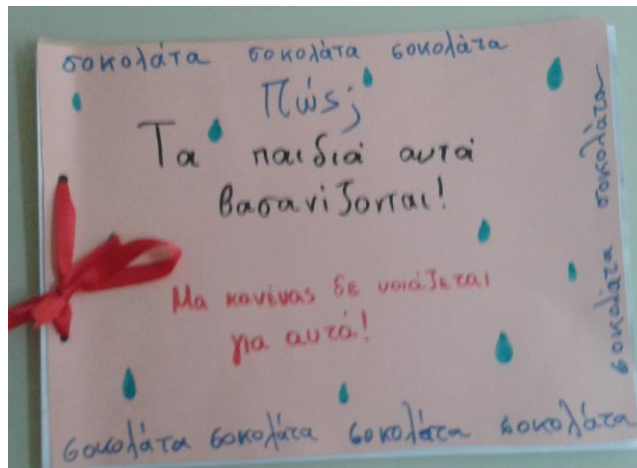 σοκολάτα σοκολάτα σοκολάτα
Πώς;
Τα παιδιά αυτά
βασανίζονται!
Μα κανένας δε νοιάζεται
για αυτά!
σοκολάτα σοκολάτα
σοκολάτα σοκολάτα σοκολάτα σοκολάτα